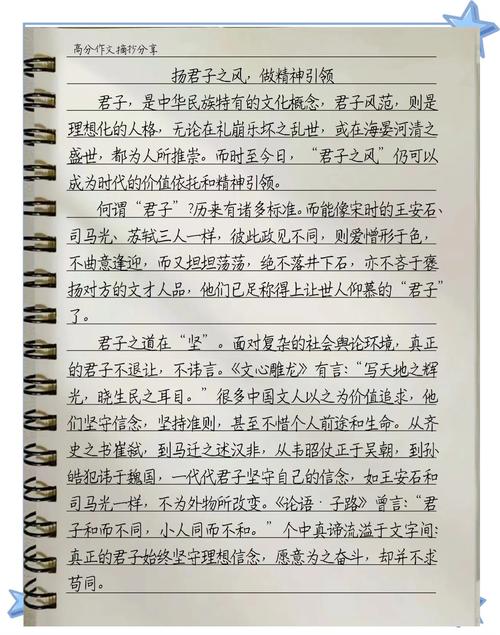 高分作文摘抄分享
扬君子之风，做精神引领
君子，是中华民族特有的文化概念，君子风范，则是
理想化的人格，无论在礼崩乐坏之乱世，或在海晏河清之
盛世，都为人所推崇。而时至今日，“君子之风”仍可以
成为时代的价值依托和精神引领。
何谓“君子”?历来有诸多标准。而能像宋时的王安石、
司马光、苏轼三人一样，彼此政见不同，则爱憎形于色，
不曲意逢迎，而又坦坦荡荡，绝不落井下石，亦不吝于褒
扬对方的文才人品，他们已足称得上让世人仰慕的“君子”
了。
君子之道在“坚”。面对复杂的社会舆论环境，真正
的君子不退让，不讳言。《文心雕龙》有言：“写天地之辉
光，晓生民之耳目。”很多中国文人以之为价值追求，他
们坚守信念，坚持准则，甚至不惜个人前途和生命。从齐
史之书崔弑，到马迁之述汉非，从韦昭仗正于吴朝，到孙
皓犯讳于魏国，一代代君子坚守自己的信念，如王安石和
司马光一样，不为外物所改变。《论语·子路》曾言：“君
子和而不同，小人同而不和。”个中真谛流溢于文字间：
真正的君子始终坚守理想信念，愿意为之奋斗，却并不求
苟同。